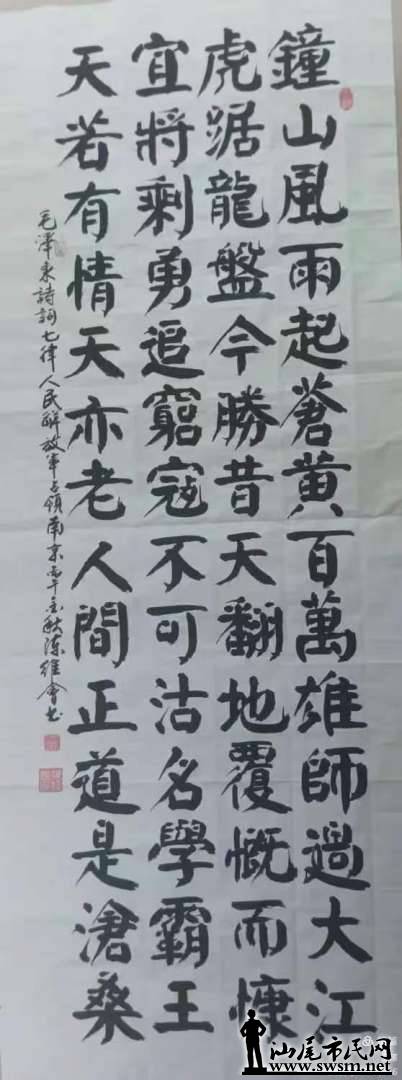 鐘山風雨起蒼黃百萬雄師過大江
虎踞龍盤今勝昔天翻地覆慨而慷
宜將剩勇追窮寇不可沽名學霸王
天若有情天亦老人間正道是滄桑
毛澤東詩詞七律人民解放軍占領南京丙午秋陳維會书
汕尾市民网
www.swsm.net